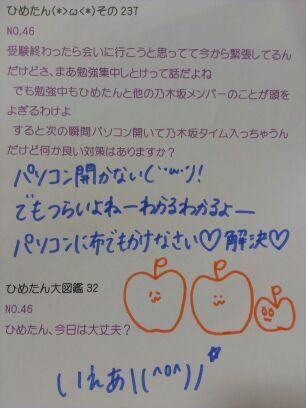 ひめたん(*>ω<*)その237
NO.46
受験終わったら会いに行こうと思ってて今から緊張してるん
だけどさ、まあ勉強集中しとけって話だよね
でも勉強中もひめたんと他の乃木坂メンバーのことが頭
をよぎるわけよ
すると次の瞬間パソコン開いて乃木坂タイム入っちゃうん
だけど何か良い対策はありますか？
パソコン開かない(｀･ω･´)！
でもつらいよねーわかるわかるよー
パソコンに布でもかけなさい♡解決♡
ひめたん大図鑑 32
NO.46
ひめたん、今日は大丈夫？
いえあ\\(^o^)/☆